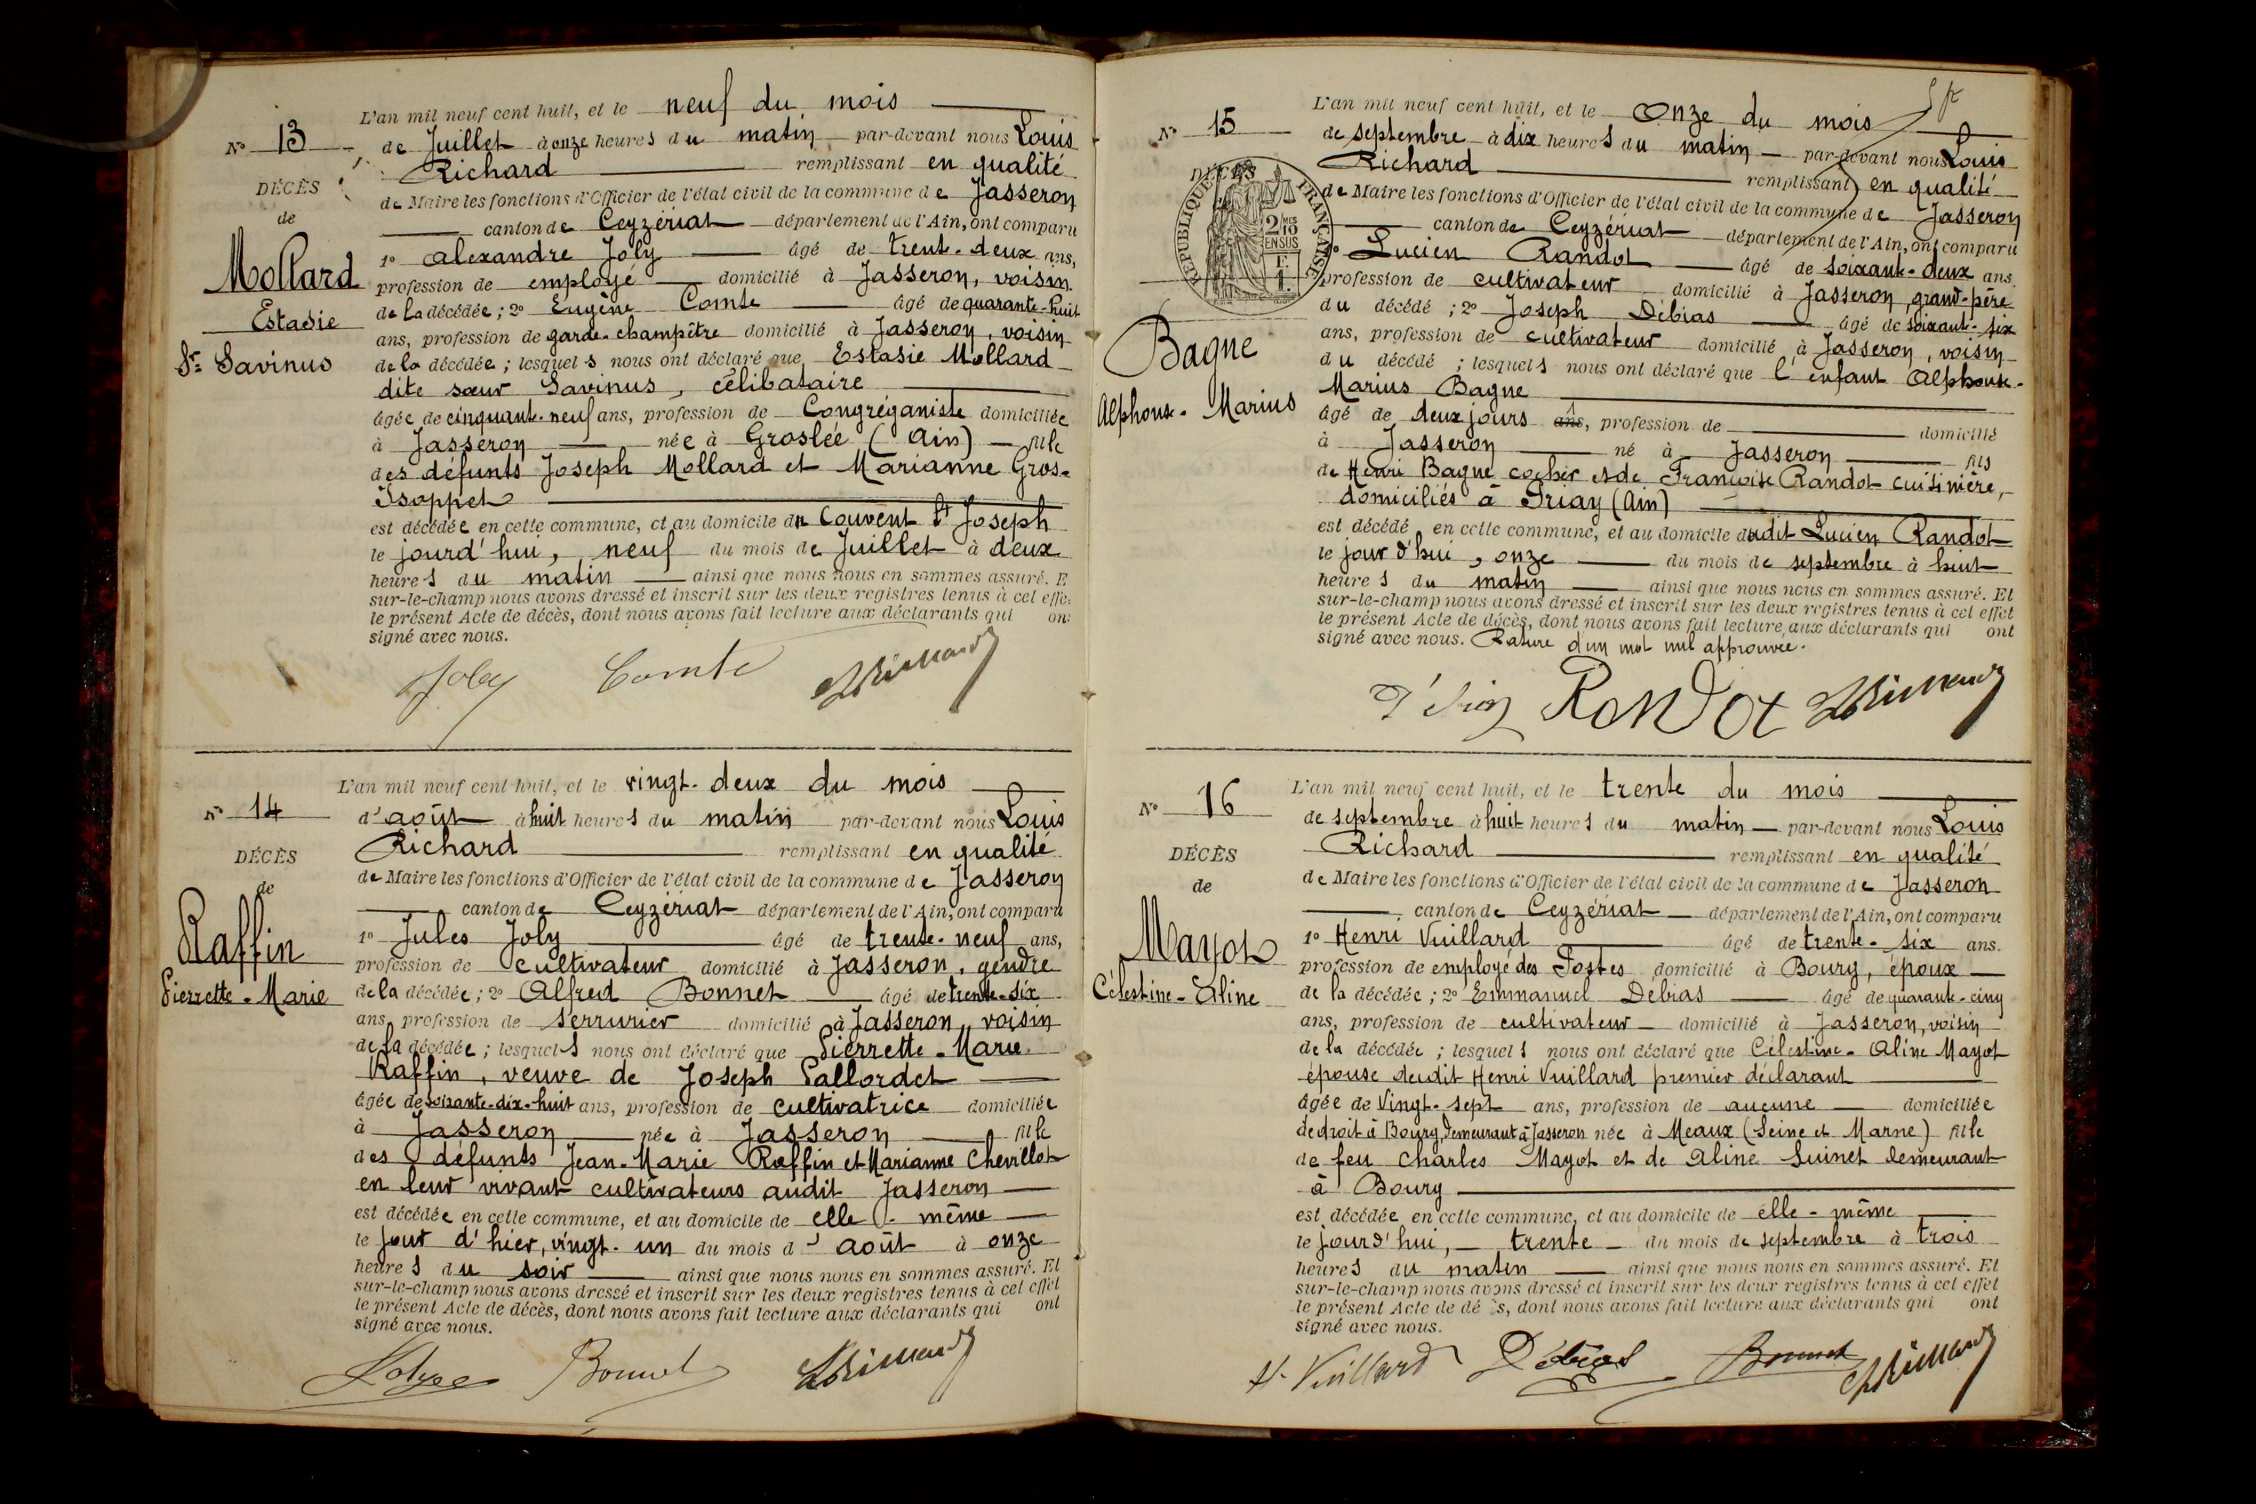 L'an mil neuf cent huit, et le neuf du mois
N° 13
de Juillet à onze heures du matin par-devant nous Louis
Richard remplissant en qualité
DÉCÈS
de Maire les fonctions d'Officier de l'état civil de la commune de Jasseron
de
canton de Ceyzériat département de l'Ain, ont comparu
Mollard
1° Alexandre Joly âgé de trente-deux ans,
profession de employé domicilié à Jasseron, voisin
Estasie
de la décédée; 2° Eugène Comte âgé de quarante-huit
ans, profession de garde-champêtre domicilié à Jasseron, voisin
Sr Savinus
de la décédée; lesquels nous ont déclaré que Estasie Mollard
dite sœur Savinus, célibataire
âgée de cinquante-neuf ans, profession de Congréganiste domiciliée
à Jasseron née à Groslée (Ain) fille
des défunts Joseph Mollard et Marianne Gros-
Isoppet
est décédée en cette commune, et au domicile du Couvent St Joseph
le jourd'hui, neuf du mois de Juillet à deux
heures du matin ainsi que nous nous en sommes assuré. E
sur-le-champ nous avons dressé et inscrit sur les deux registres tenus à cet effe
le présent Acte de décès, dont nous avons fait lecture aux déclarants qui on
signé avec nous.
Joly Comte
L'an mil neuf cent huit, et le vingt-deux du mois
N° 14
d'août à huit heures du matin par-devant nous Louis
Richard remplissant en qualité
DÉCÈS
de Maire les fonctions d'Officier de l'état civil de la commune de Jasseron
de
canton de Ceyzériat département de l'Ain, ont comparu
Raffin
1° Jules Joly âgé de trente-neuf ans,
profession de cultivateur domicilié à Jasseron, gendre
Pierrette-Marie
de la décédée; 2° Alfred Bonnet âgé de trente-six
ans, profession de serrurier domicilié à Jasseron, voisin
de la décédée; lesquels nous ont déclaré que Pierrette-Marie
Raffin, veuve de Joseph Pallordet
âgée de soixante-dix-huit ans, profession de cultivatrice domiciliée
à Jasseron née à Jasseron fille
des défunts Jean-Marie Raffin et Marianne Chevillot
en leur vivant cultivateurs audit Jasseron
est décédée en cette commune, et au domicile de elle-même
le jour d'hier, vingt-un du mois d'août à onze
heures du soir ainsi que nous nous en sommes assuré. Et
sur-le-champ nous avons dressé et inscrit sur les deux registres tenus à cet effet
le présent Acte de décès, dont nous avons fait lecture aux déclarants qui ont
signé avec nous.
Bonnet
L'an mil neuf cent huit, et le onze du mois
N° 15
de septembre à dix heures du matin par-devant nous Louis
Richard remplissant en qualité
DÉCÈS
RÉPUBLIQUE FRANÇAISE
2/10 MES EN SUS
de Maire les fonctions d'Officier de l'état civil de la commune de Jasseron
canton de Ceyzériat département de l'Ain, ont comparu
Lucien Randot âgé de soixante-deux ans
profession de cultivateur domicilié à Jasseron, grand-père
du décédé; 2° Joseph Débias âgé de soixante-six
Bagne
ans, profession de cultivateur domicilié à Jasseron, voisin
du décédé; lesquels nous ont déclaré que l'enfant Alphonse-
Marius Bagne
Alphonse-Marius
âgé de deux jours ans, profession de domicilié
à Jasseron né à Jasseron fils
de Henri Bagne cocher et de Françoise Randot cuisinière,
domiciliés à Priay (Ain)
est décédé en cette commune, et au domicile dudit Lucien Randot
le jour d'hui, onze du mois de septembre à huit
heures du matin ainsi que nous nous en sommes assuré. Et
sur-le-champ nous avons dressé et inscrit sur les deux registres tenus à cet effet
le présent Acte de décès, dont nous avons fait lecture aux déclarants qui ont
signé avec nous. Rature d'un mot nul approuvée.
Randot
L'an mil neuf cent huit, et le trente du mois
N° 16
de septembre à huit heures du matin par-devant nous Louis
Richard remplissant en qualité
DÉCÈS
de Maire les fonctions d'Officier de l'état civil de la commune de Jasseron
de
canton de Ceyzériat département de l'Ain, ont comparu
Mayot
1° Henri Vuillard âgé de trente-six ans.
profession de employé des Postes domicilié à Bourg, époux
Célestine-Aline
de la décédée; 2° Emmanuel Debias âgé de quarante-cinq
ans, profession de cultivateur domicilié à Jasseron, voisin
de la décédée; lesquels nous ont déclaré que Célestine-Aline Mayot
épouse deudit Henri Vuillard premier déclarant
âgée de Vingt-sept ans, profession de aucune domiciliée
de droit à Bourg, demeurant à Jasseron née à Meaux (Seine et Marne) fille
de feu Charles Mayot et de Aline Suinet demeurant
à Bourg
est décédée en cette commune, et au domicile de elle-même
le jourd'hui, trente du mois de septembre à trois
heures du matin ainsi que nous nous en sommes assuré. Et
sur-le-champ nous avons dressé et inscrit sur les deux registres tenus à cet effet
le présent Acte de dé s, dont nous avons fait lecture aux déclarants qui ont
signé avec nous.
H. Vuillard Débias Bonnet